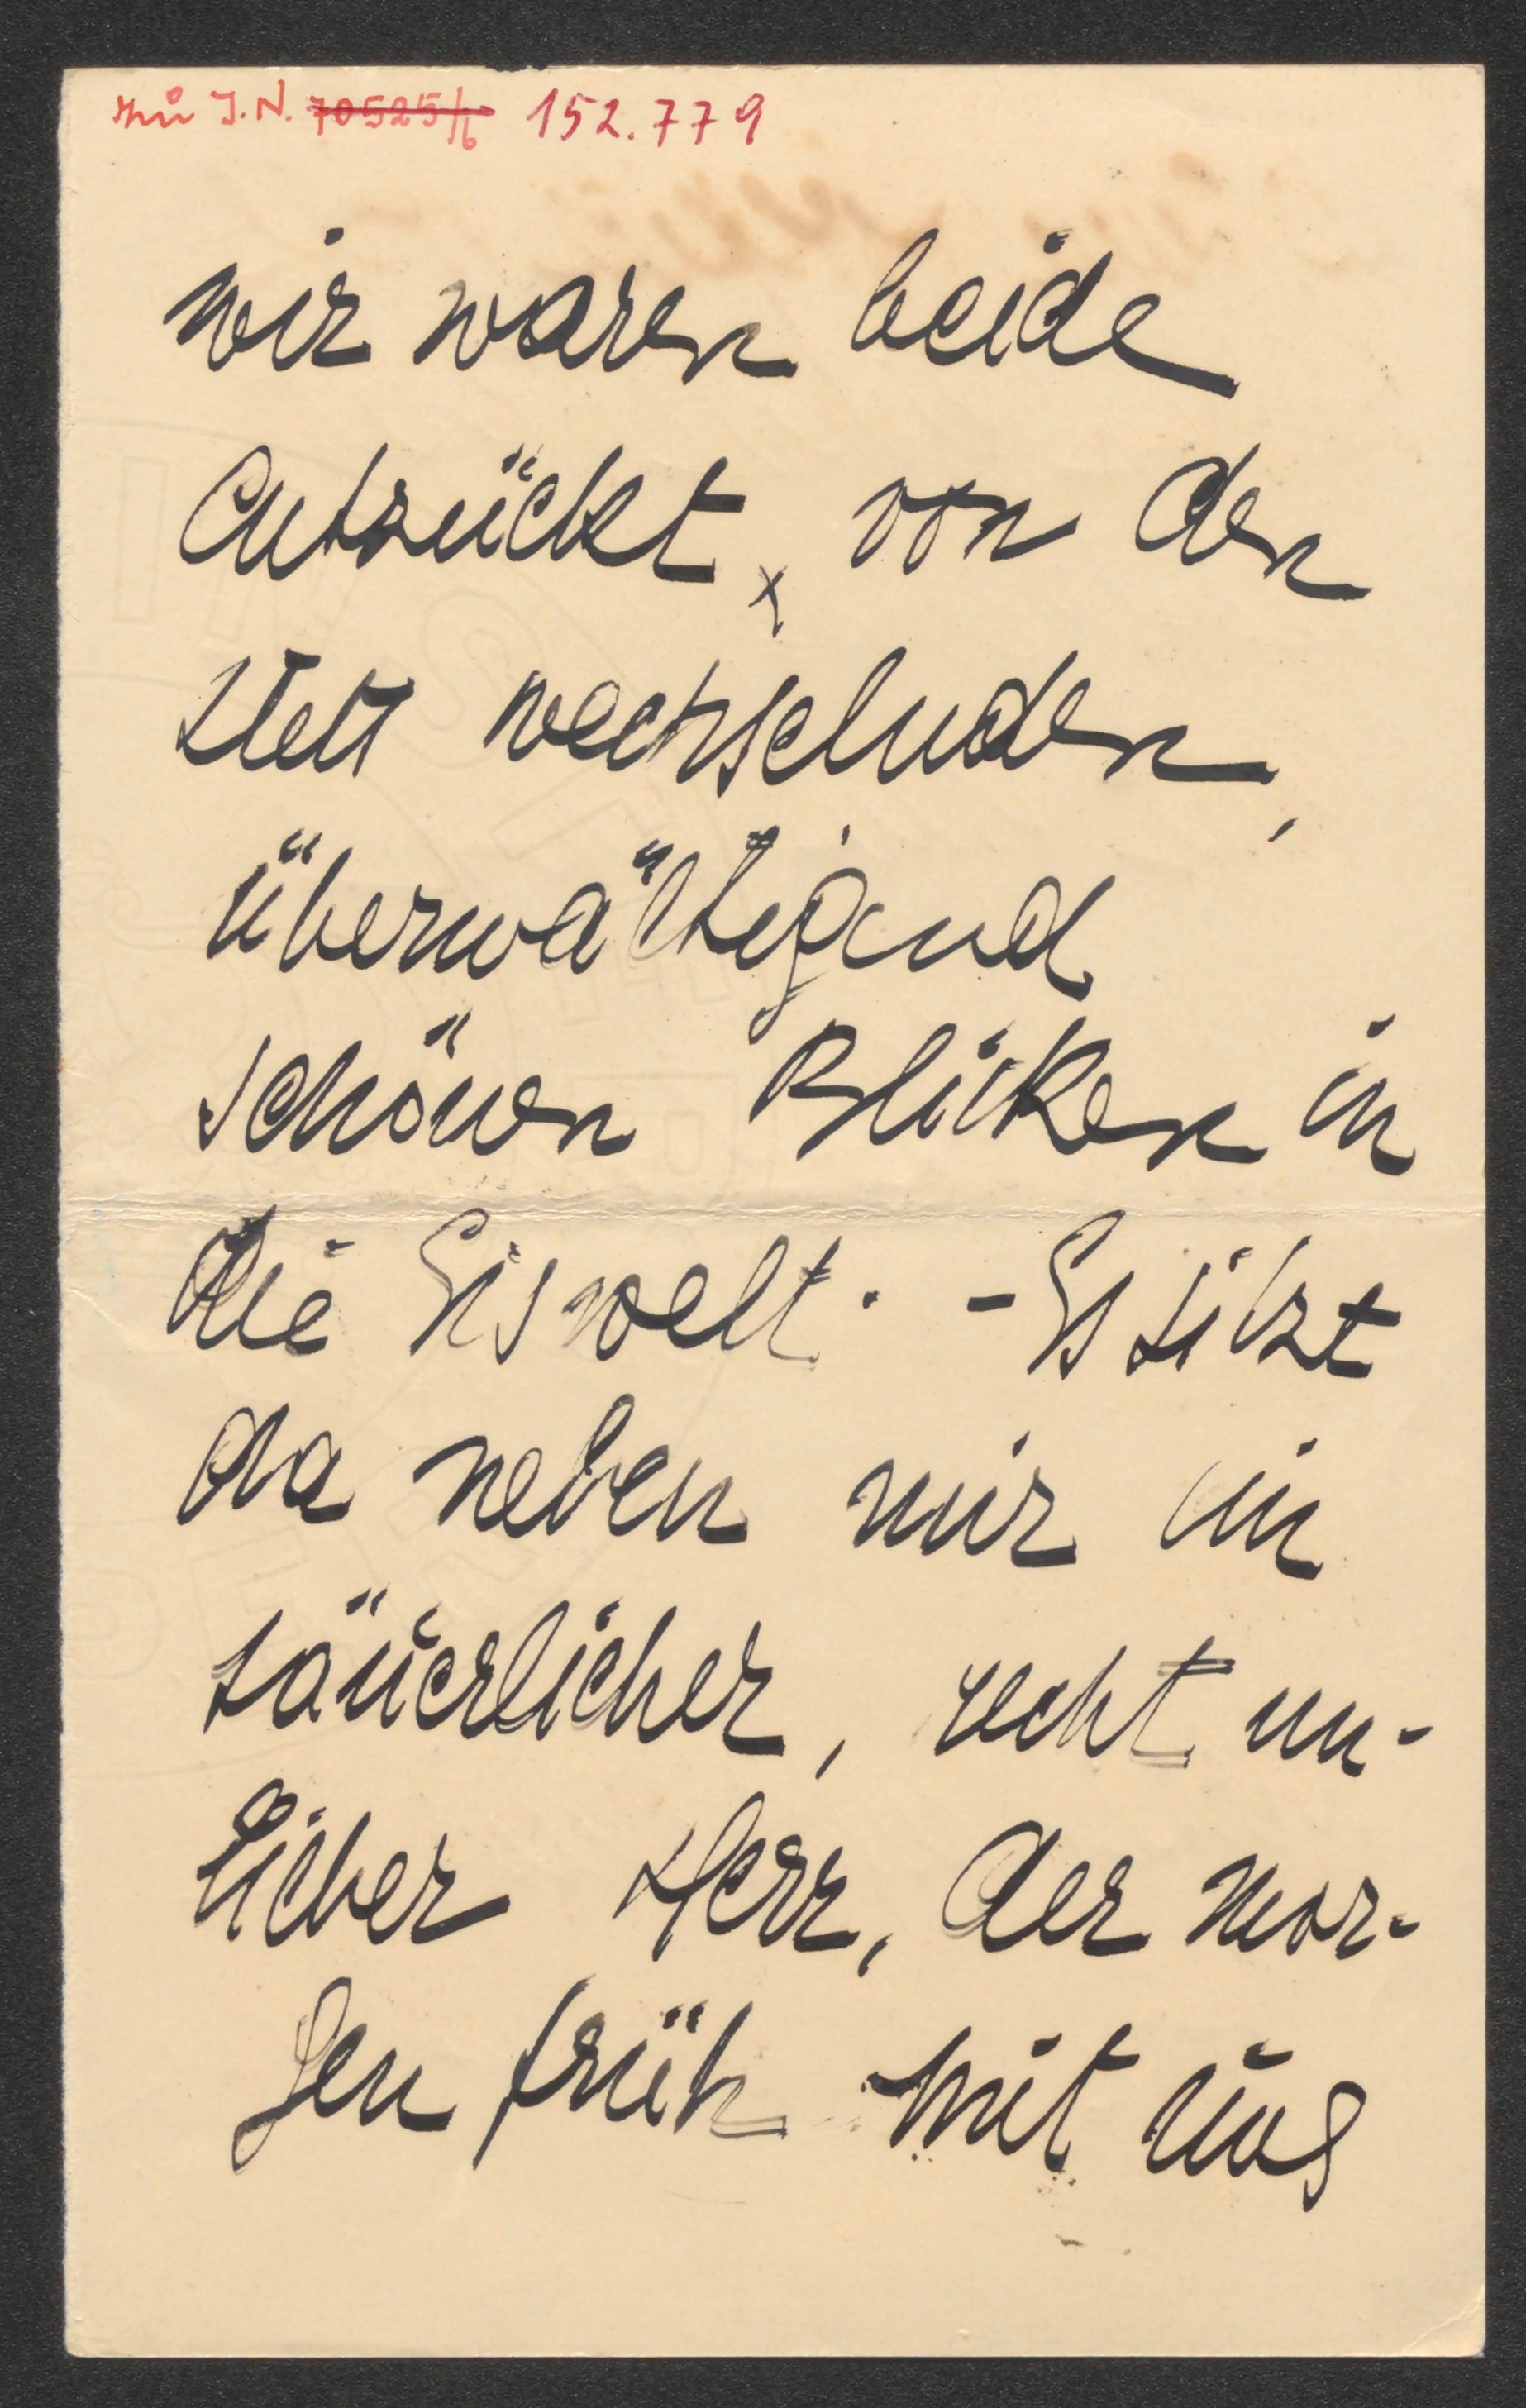 zu I.N. 70525/6 152.779
wir waren beide
entzückt, von den
stets wechselnden,
überwältigend
schönen Blicken in
die Eiswelt. - Es sitzt
da neben mir ein
säuerlicher, recht un-
lieber Herr, der mor-
gen früh mit uns